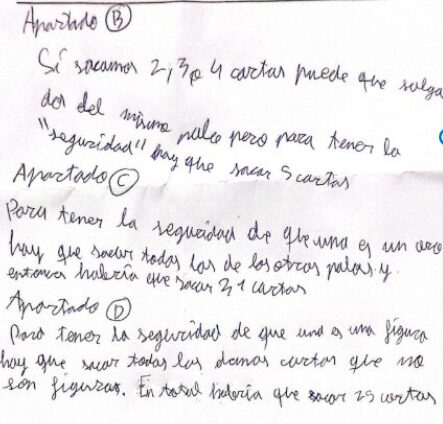 Apartado B
Si sacamos 2, 3 o 4 cartas puede que salga
dos del mismo palo pero para tener la
"seguridad" hay que sacar 5 cartas
Apartado C
Para tener la seguridad de que una es un oro
hay que sacar todas las de los otros palos y
entonces habría que sacar 31 cartas
Apartado D
Para tener la seguridad de que una es una figura
hay que sacar todas las demas cartas que no
son figuras. En total habría que sacar 29 cartas